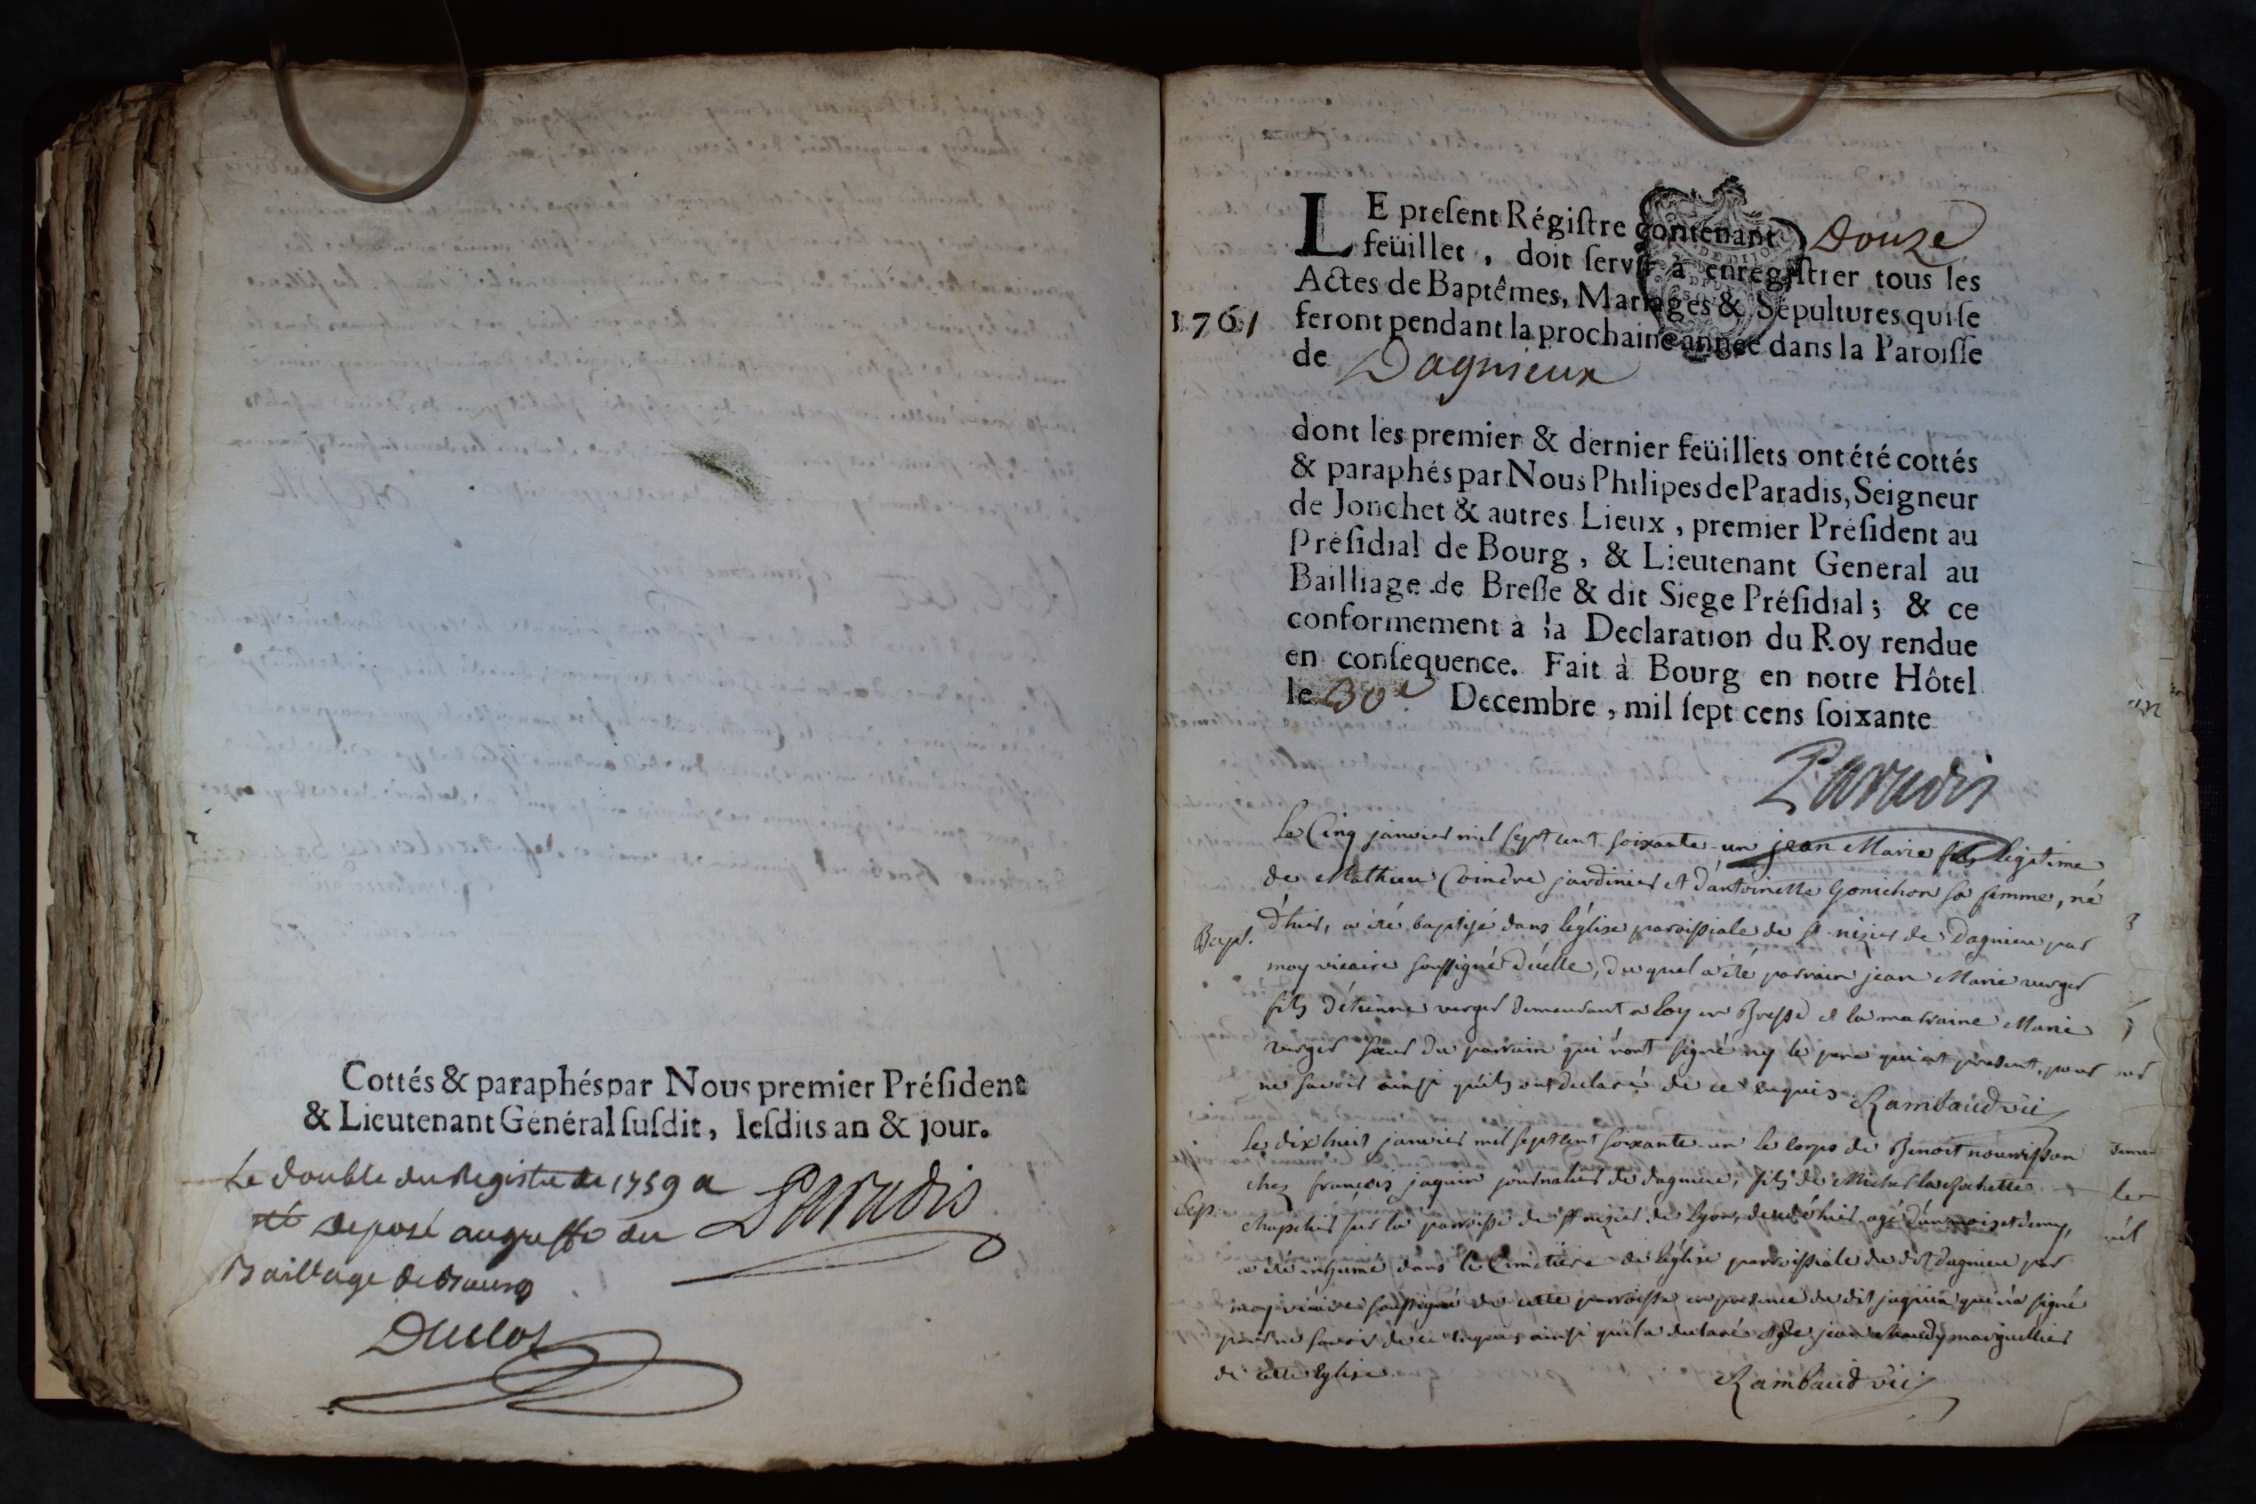 Cottés & paraphés par Nous premier Préſident
& Lieutenant Général ſuſdit, leſdits an & jour.
Le double du Registre de 1759 a
été deposé au greffe du
Bailliage de Bourg
Paradis
Duclos
1761
LE preſent Régiſtre contenant Douze
feüillet, doit ſervir à enregiſtrer tous les
Actes de Baptêmes, Mariages & Sépultures qui ſe
feront pendant la prochaine année dans la Paroiſſe
de Dagnieux
dont les premier & dernier feüillets ont été cottés
& paraphés par Nous Philipes de Paradis, Seigneur
de Jonchet & autres Lieux, premier Préſident au
Préſidial de Bourg, & Lieutenant General au
Bailliage de Breſſe & dit Siege Préſidial; & ce
conformement à la Declaration du Roy rendue
en conſequence. Fait à Bourg en notre Hôtel
le 30e Decembre, mil ſept cens ſoixante
Paradis
Le Cinq janvier mil sept cent soixante un jean Marie fils légitime
de Mathieu Coindre jardinier et d'antoinette gonichon sa femme, né
Bapt.
d'hier, a été baptisé dans l'église paroissiale de st nizier de Dagnieu par
moy vicaire soussigné d'icelle, du quel a été parrain jean Marie verger
fils d'étienne verger demeurant a loy en Bresse et la marraine Marie
verger sœur du parrain qui n'ont signé ny le pere qui est present, pour
ne savoir ainsi qu'ils ont declaré de ce enquis Rambaud vic
Le dixhuit janvier mil sept cent soixante un le corps de Benoit nourrisson
chez françois jaquin journalier de dagnieu, fils de Michel la Rochette
Sep.
chapelier sur la parroisse de st nizier de lyon, decedé hier agé d'un mois et demy,
a été inhumé dans le Cimetière de l'église parroissiale du dit dagnieu par
moy vicaire soussigné de cette parroisse en presence du dit jaquin qui n'a signé
pour ne savoir de ce enquis ainsi qu'il a declaré et de jean Maudy marguillier
de cette église
Rambaud vic